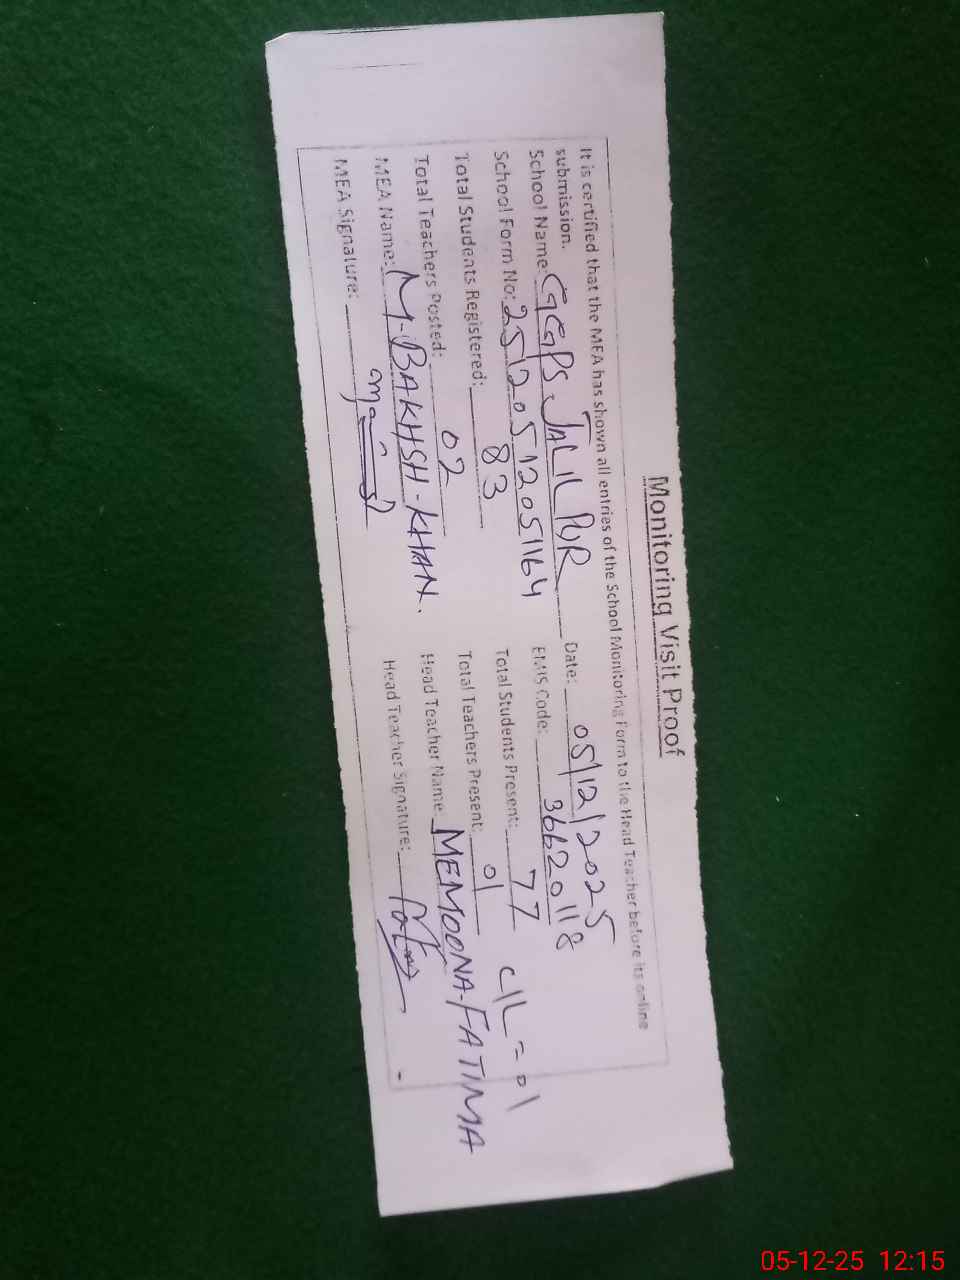 Monitoring Visit Proof
It is certified that the MEA has shown all entries of the School Monitoring Form to the Head Teacher before its online
submission.
School Name: GGPS JALIL PUR Date: 05/12/2025
School Form No: 251205 12051164 EMIS Code: 36620118
Total Students Registered: 83 Total Students Present: 77
Total Teachers Posted: 02 Total Teachers Present: 01 C/L = 01
MEA Name: M-BAKHSH-KHAN. Head Teacher Name: MEMOONA-FATIMA
MEA Signature: Head Teacher Signature:
05-12-25 12:15